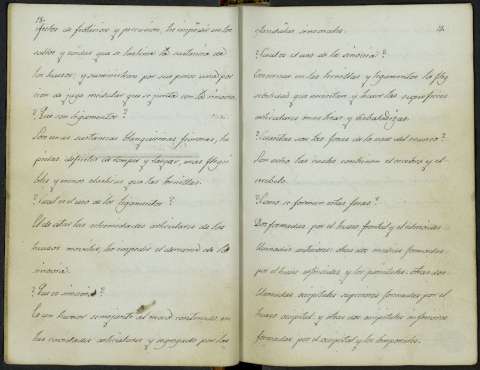 18.
efectos de frotacion y percusion, las impresas en los
saltos y caidas que se lastime la sustancia de
los huesos; y suministran por sus poros una por
cion de jugo medular que se junta con la sinovia.
¿Que son ligamentos?
Son unas sustancias blanquisimas fibrosas, tu
pidas dificiles de romper y rasgar, mas flexi
bles y menos elasticas que las ternillas.
¿Cual es el uso de los ligamentos?
El de atar las estremidades articulares de los
huesos movibles, les impiden el derrame de la
sinovia.
¿Que es sinovia?
Es un humor semejante al moco contenido en
las cavidades articulares y segregado por las
19.
glandulas sinoviales.
¿Cual es el uso de la sinovia?
Conservar en las ternillas y ligamentos la flex
sibilidad que necesitan y hacer las superficies
articulares mas lisas y resbaladizas.
¿Cuantas son las fosas de la base del craneo?
Son ocho las cuales contienen el cerebro y el
cerebelo.
¿Como se forman estas fosas?
Dos formadas, por el hueso frontal y el etmoides
llamadas anteriores: otras dos medias formadas
por el hueso esfenoides, y los parietales: otras dos
llamadas occipitales superiores formadas por el
hueso occipital: y otras dos occipitales inferiores
formadas por el occipital y los temporales.